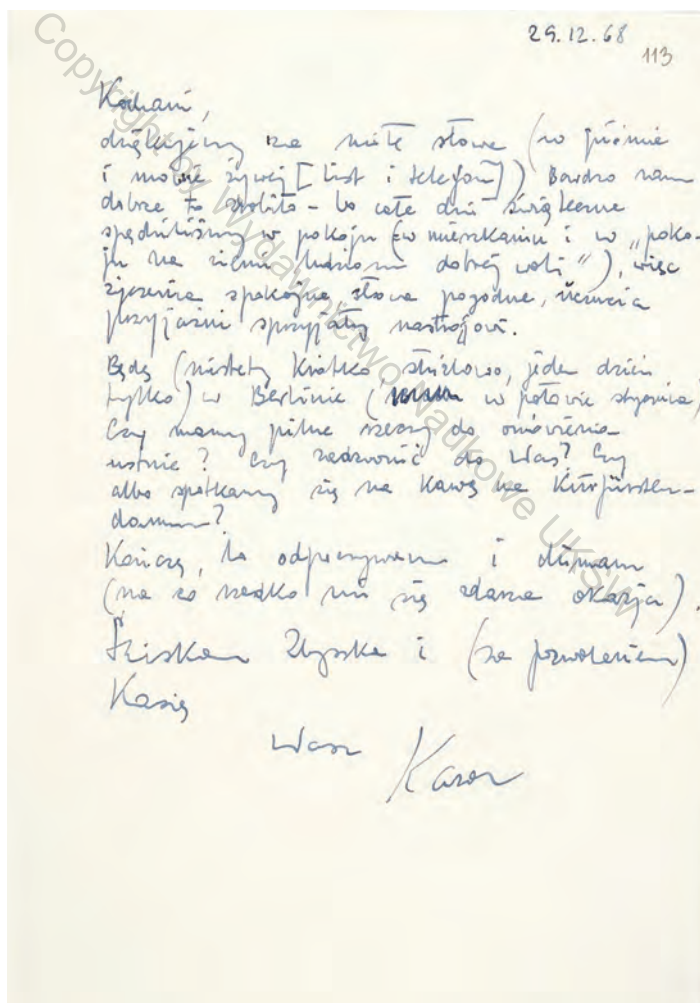 29.12.68
113
Kochani,
dziękujemy za miłe słowa (w piśmie
i mowie żywej [list i telefon]) Bardzo nam
dobrze to zrobiło – bo całe dni świąteczne
spędziliśmy w pokoju (w mieszkaniu i w „poko-
ju na ziemi ludziom dobrej woli"), więc
życzenia spokojne, słowa pogodne, uczucia
przyjaźni sprzyjały nastrojowi.
Będę (niestety krótko, służbowo, jeden dzień
tylko) w Berlinie ( w połowie stycznia,
Czy mamy pilne rzeczy do omówienia
ustnie? Czy zadzwonić do Was? Czy
albo spotkamy się na kawę na Kurfürsten-
damm?
Kończę, bo odpoczywam i dumam
(na co rzadko mi się zdarza okazja).
Ściskam Zbyszka i (za pozwoleniem)
Kasię
Wasz
Copyright by Wydawnictwo Naukowe UKSW